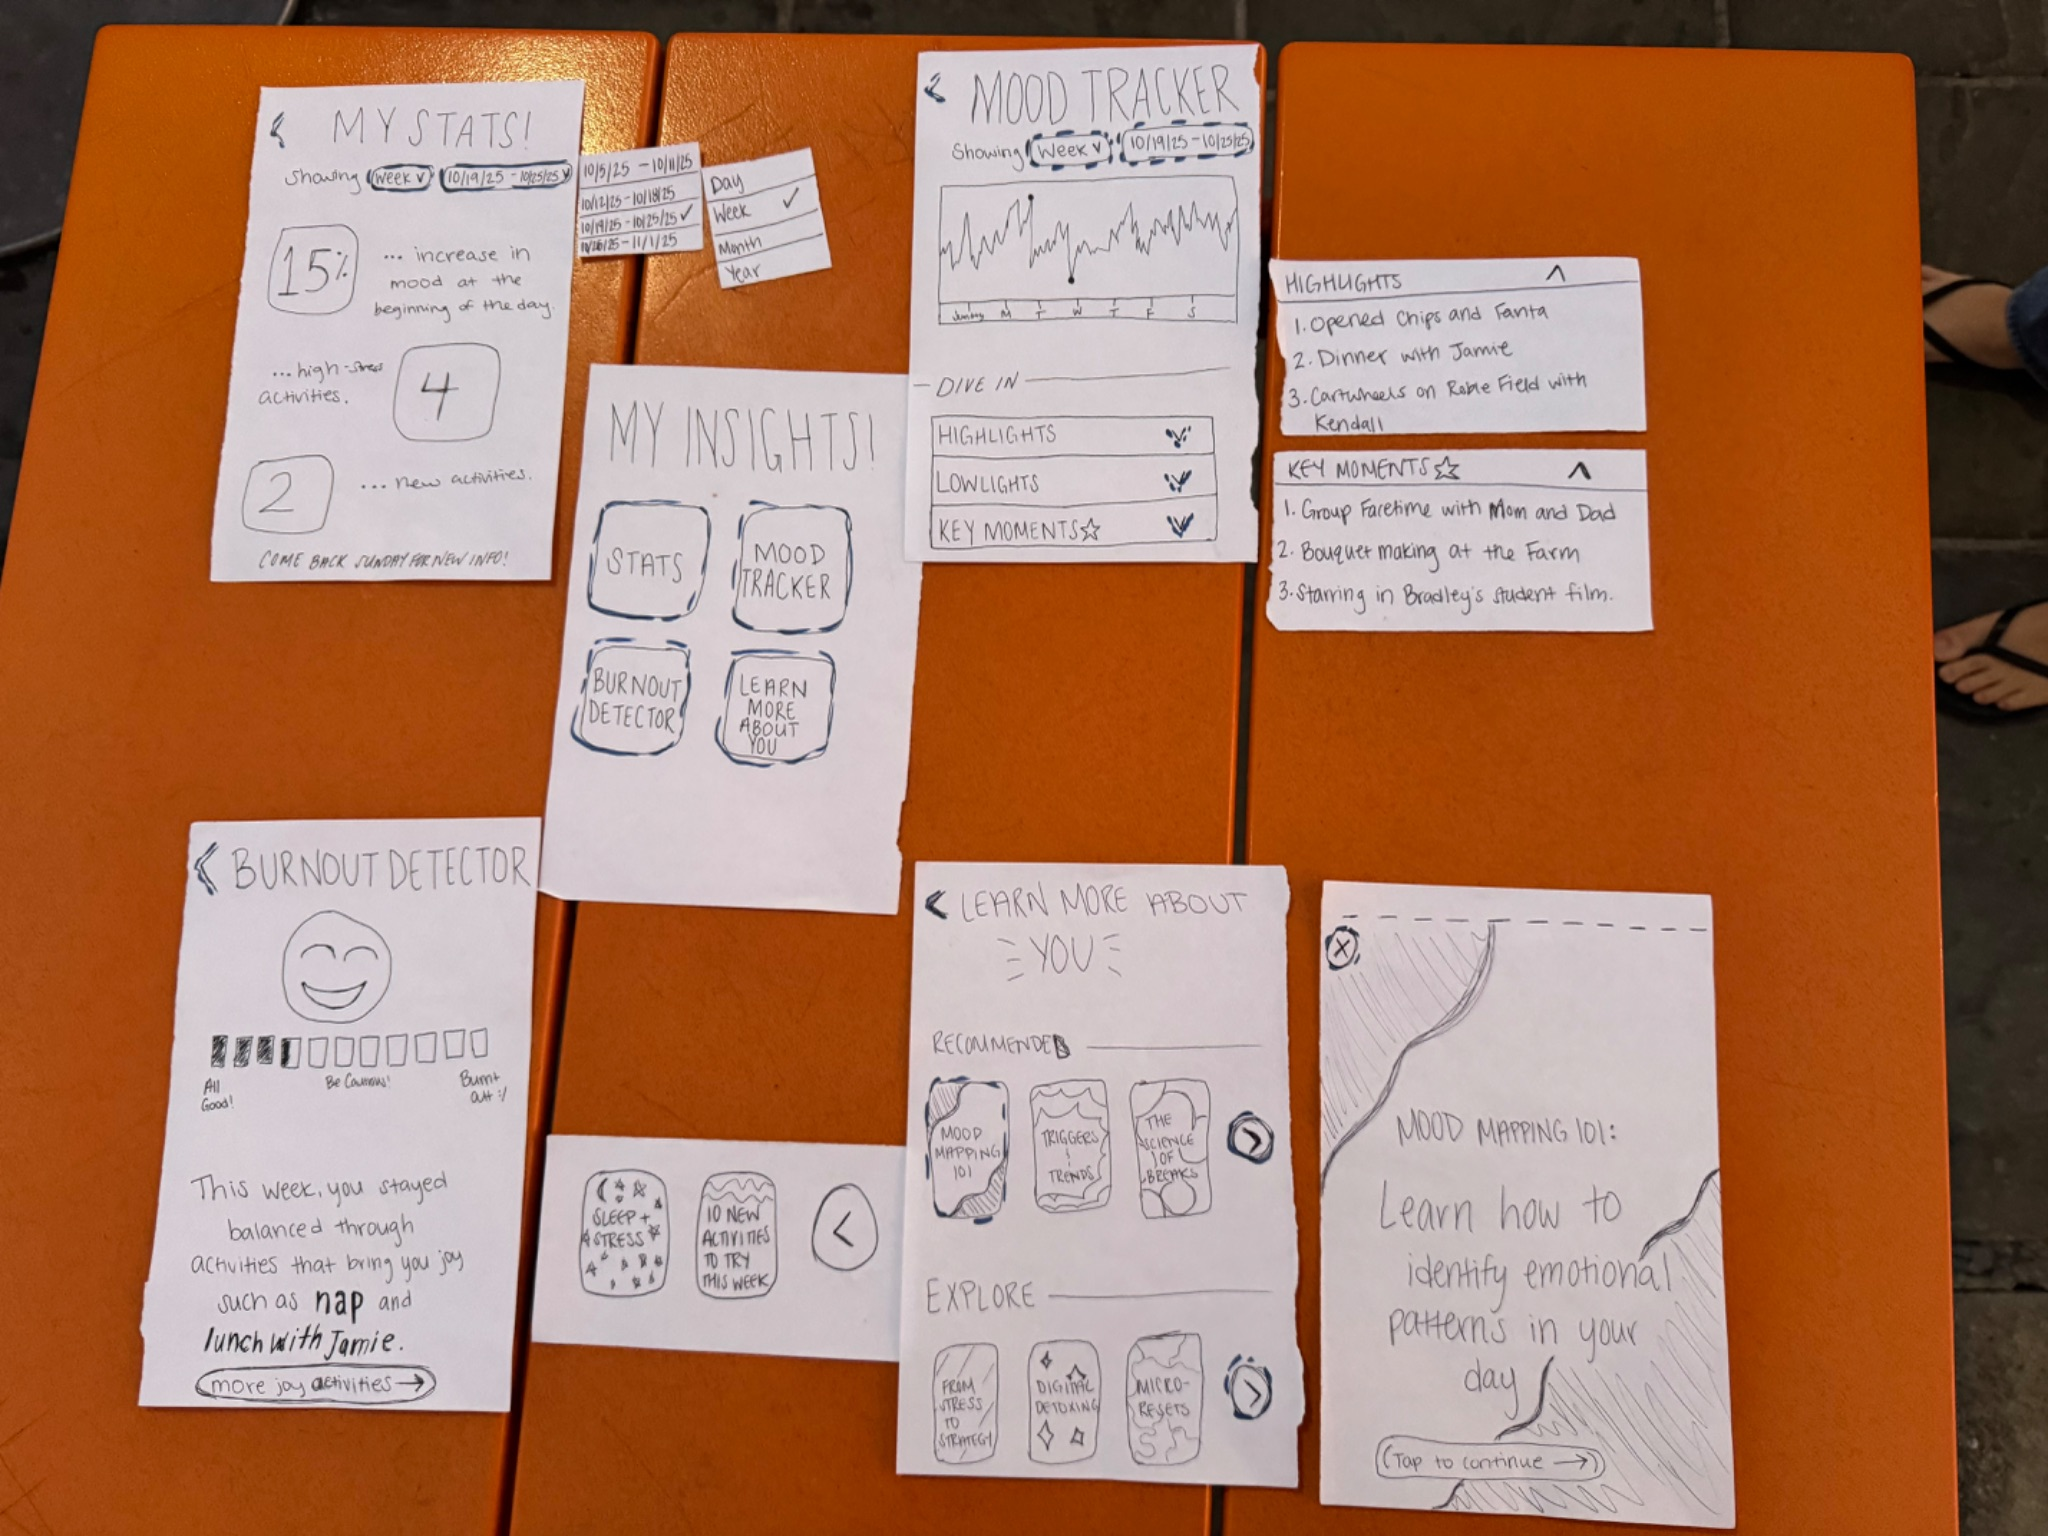 MY STATS!
Showing Week v 10/19/25 - 10/25/25 v
15% ... increase in
mood at the
beginning of the day.
...high-stress
activities. 4
2 ... new activities.
COME BACK SUNDAY FOR NEW INFO!
10/5/25 - 10/11/25
10/12/25 - 10/18/25
10/19/25 - 10/25/25 ✓
10/26/25 - 11/1/25
Day
Week ✓
Month
Year
< MOOD TRACKER
Showing Week v 10/19/25 - 10/25/25
Sunday M T W T F S
DIVE IN
HIGHLIGHTS
LOWLIGHTS
KEY MOMENTS☆
HIGHLIGHTS ^
1. Opened Chips and Fanta
2. Dinner with Jamie
3. Cartwheels on Roble Field with
Kendall
KEY MOMENTS☆ ^
1. Group Facetime with Mom and Dad
2. Bouquet making at the Farm
3. Starring in Bradley's student film.
MY INSIGHTS!
STATS
MOOD
TRACKER
BURNOUT
DETECTOR
LEARN
MORE
ABOUT
YOU
< BURNOUT DETECTOR
All
Good!
Be Cautious!
Burnt
out :/
This week, you stayed
balanced through
activities that bring you joy
such as nap and
lunch with Jamie.
more joy activities →
SLEEP +
STRESS
10 NEW
ACTIVITIES
TO TRY
THIS WEEK
<
< LEARN MORE ABOUT
YOU
RECOMMENDED
MOOD
MAPPING
101
TRIGGERS
&
TRENDS
THE
SCIENCE
OF
BREAKS
>
EXPLORE
FROM
STRESS
TO
STRATEGY
DIGITAL
DETOXING
MICRO-
RESETS
>
X
MOOD MAPPING 101:
Learn how to
identify emotional
patterns in your
day
Tap to continue →